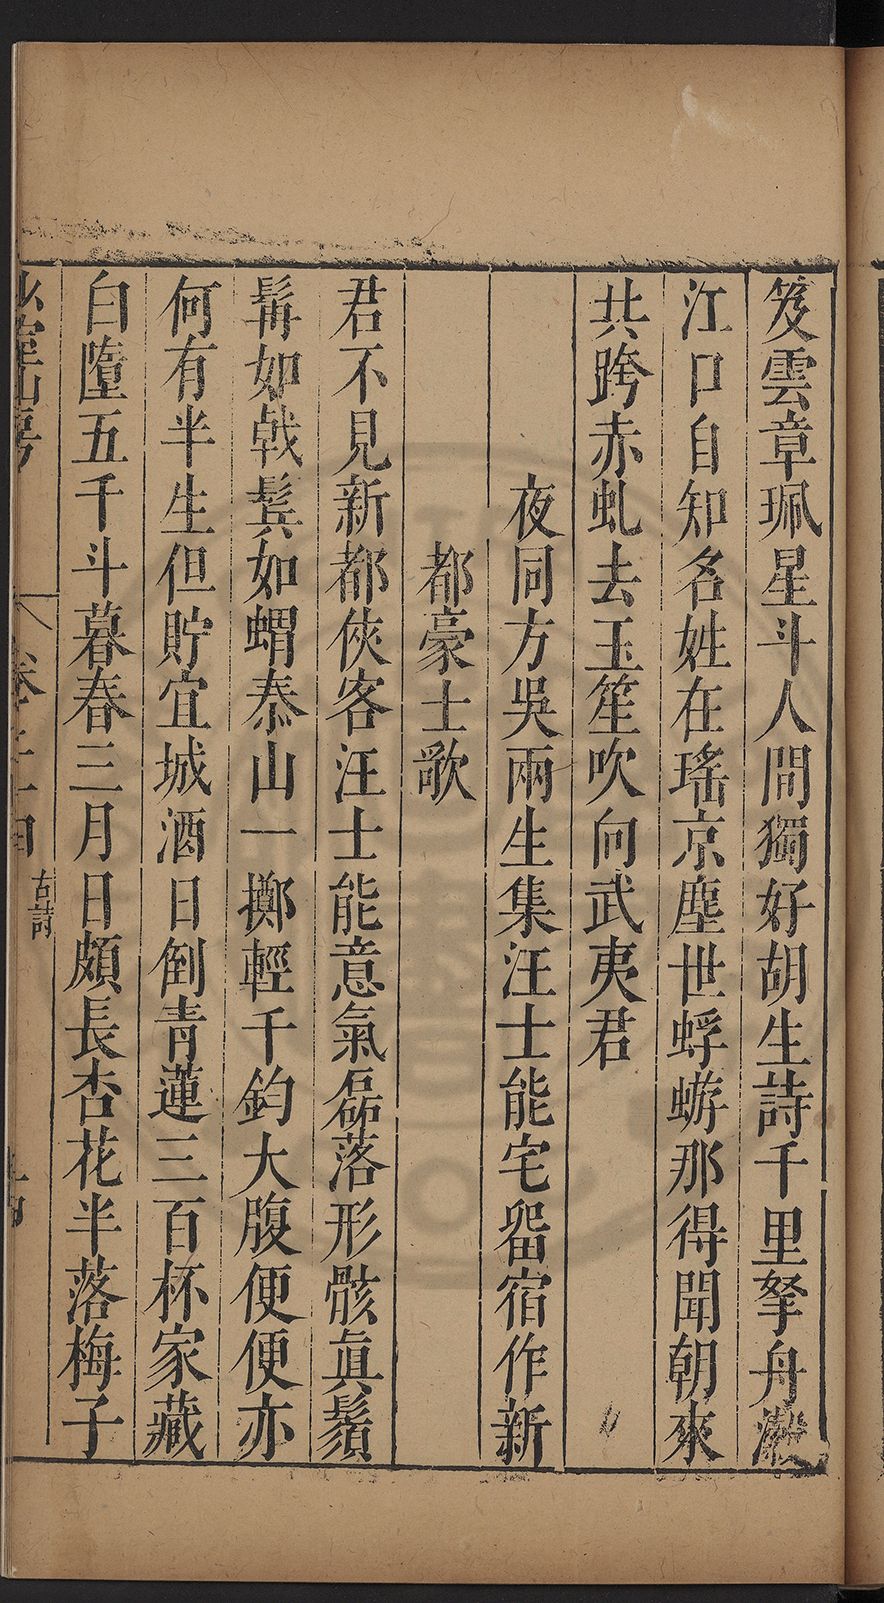 笈雲章珮星斗人間獨好胡生詩千里拏舟瀫
江口自知名姓在瑤京塵世蜉蝣那得聞朝來
共跨赤虬去玉笙吹向武夷君
夜同方吳兩生集汪士能宅畱宿作新
都豪士歌
君不見新都俠客汪士能意氣磊落形骸眞鬚
髯如戟鬂如蝟泰山一擲輕千鈞大腹便便亦
何有半生但貯宜城酒日倒靑蓮三百杯家藏
白墮五千斗暮春三月日頗長杏花半落梅子
少室山房
卷二十四
古詩